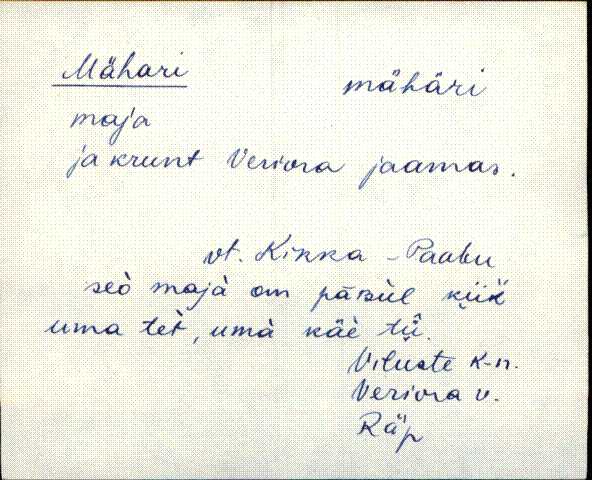 Mähari mähäri
maja
ja krunt Veriora jaamas.
vt. Kikka-Paabu
seò majà om päŕsùl kiiḱ
uma tèt, umà käè tü̂.
Viluste k-n.
Veriora v.
Räp